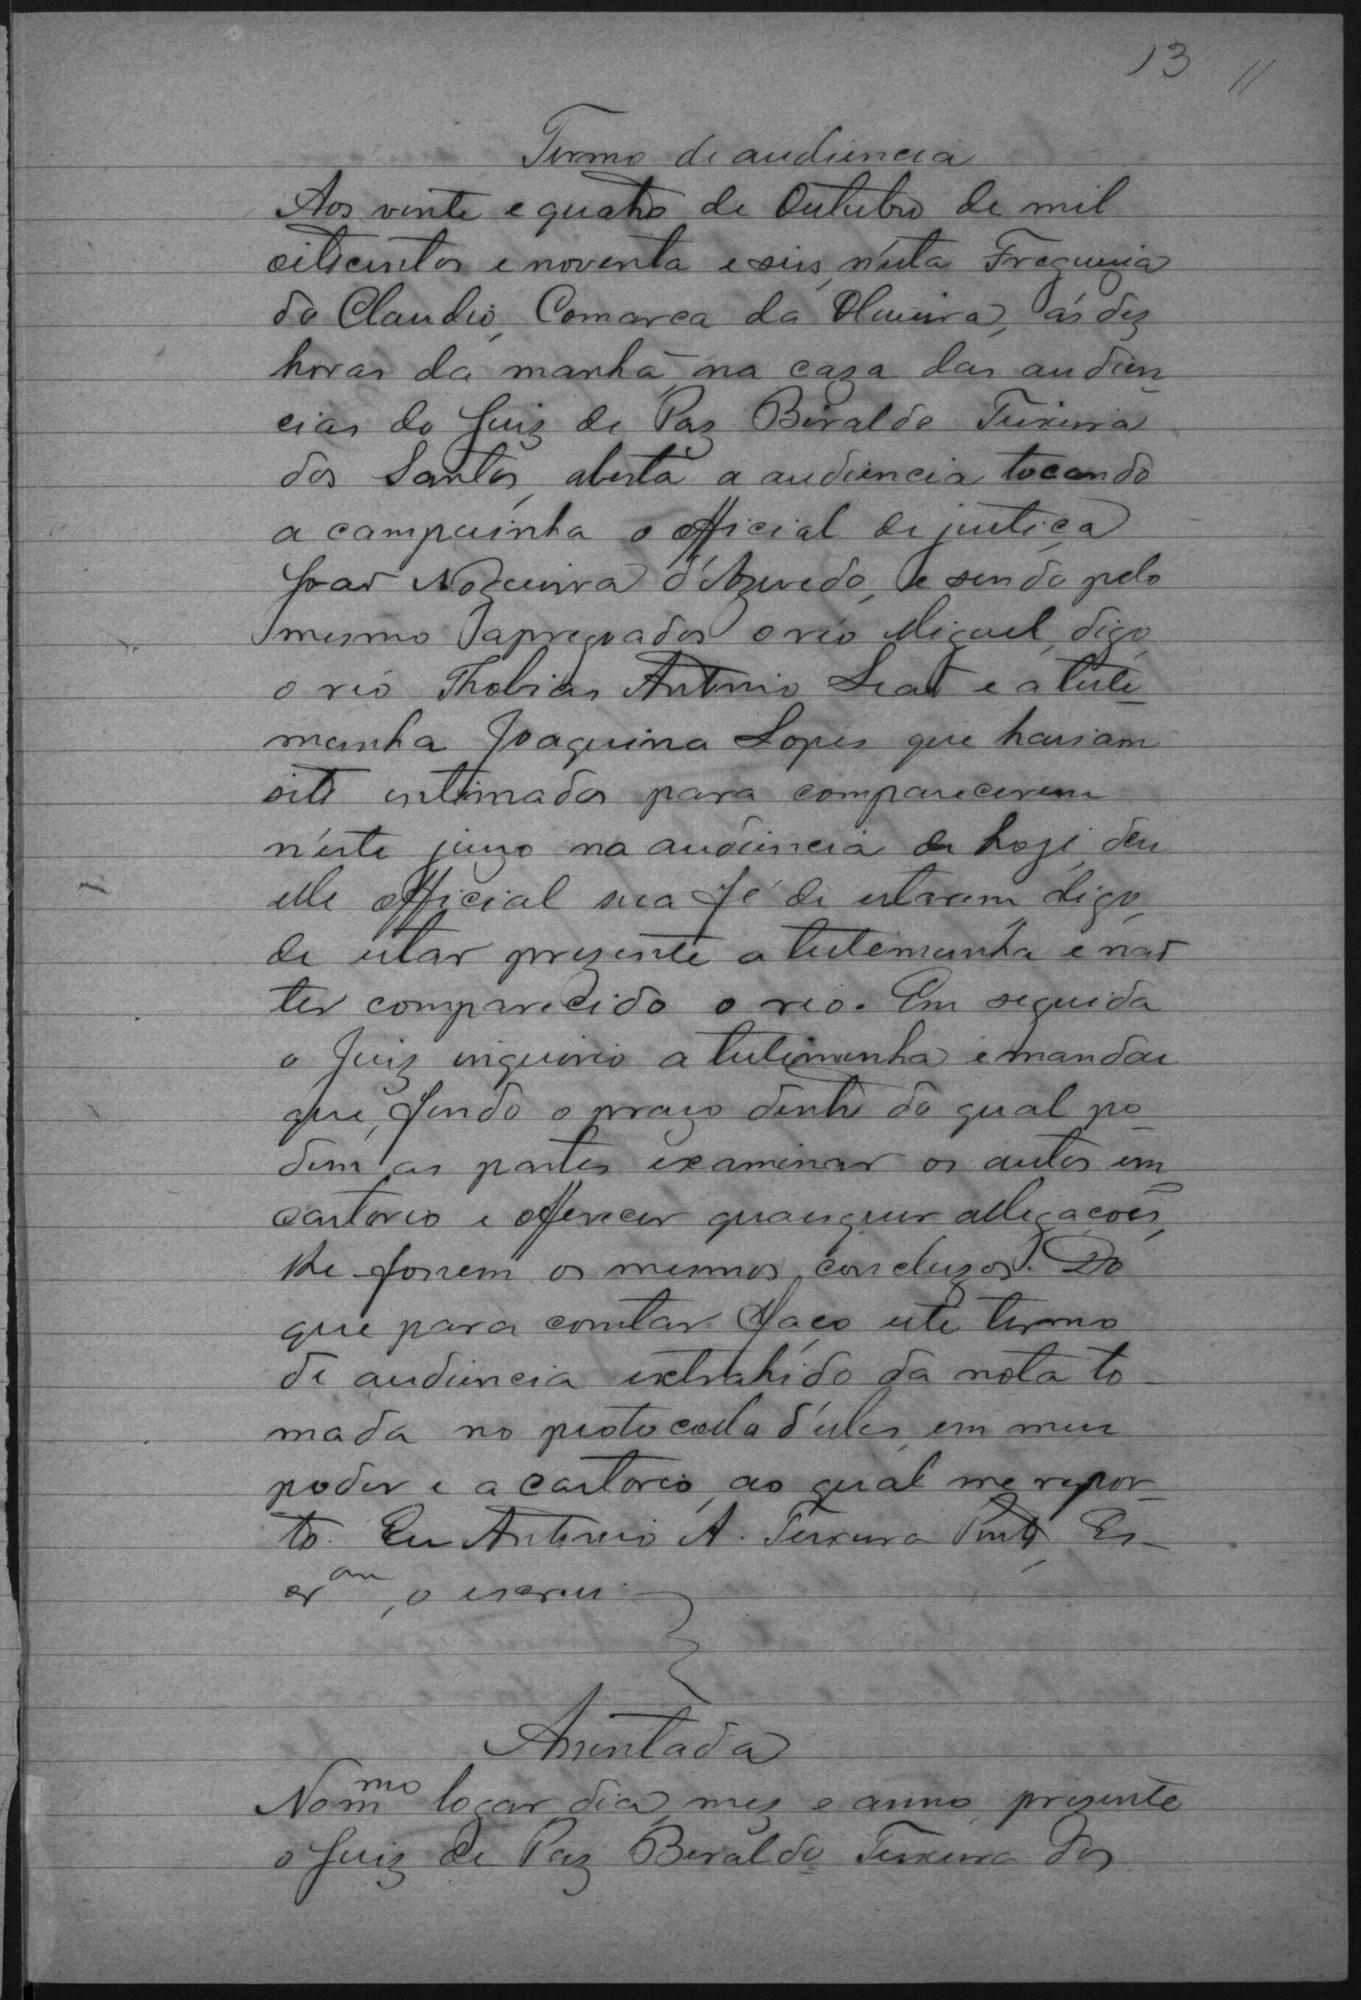 13 11
Termo de audiencia
Aos vinte e quatro de Outubro de mil
oitocentos e noventa e seis, n'esta Freguezia
do Claudio, Comarca da Oliveira, ás dez
horas da manhã na caza das audien-
cias do Juiz de Paz Beraldo Teixeira
dos Santos, aberta a audiencia tocando
a campainha o official de justiça
João Nogueira d'Azevedo, e sendo pelo
mesmo apregoados o réo Miguel, digo,
o réo Thobias Antonio Leal e a teste-
munha Joaquina Lopes que haviam
sito intimados para comparecerem
n'este juizo na audiencia de hoje, deu
elle official sua fé de estarem, digo,
de estar prezente a testemunha e não
ter comparecido o reo. Em seguida
o Juiz inquirio a testemunha e mandou
que, findo o prazo dentro do qual po-
dem as partes examinar os autos em
cartorio e offerecer quaesquer allegações,
lhe fossem os mesmos concluzos. Do
que para constar faço este termo
de audiencia extrahido da nota to-
mada no protocollo d'ellas, em meu
poder e a cartorio, ao qual me repor-
to. Eu Antonio A. Teixeira Pinto, Es-
cr<sup>am</sup>, o escrevi.
Assentada
No m<sup>mo</sup> logar, dia, mez e anno, prezente
o Juiz de Paz Beraldo Teixeira dos